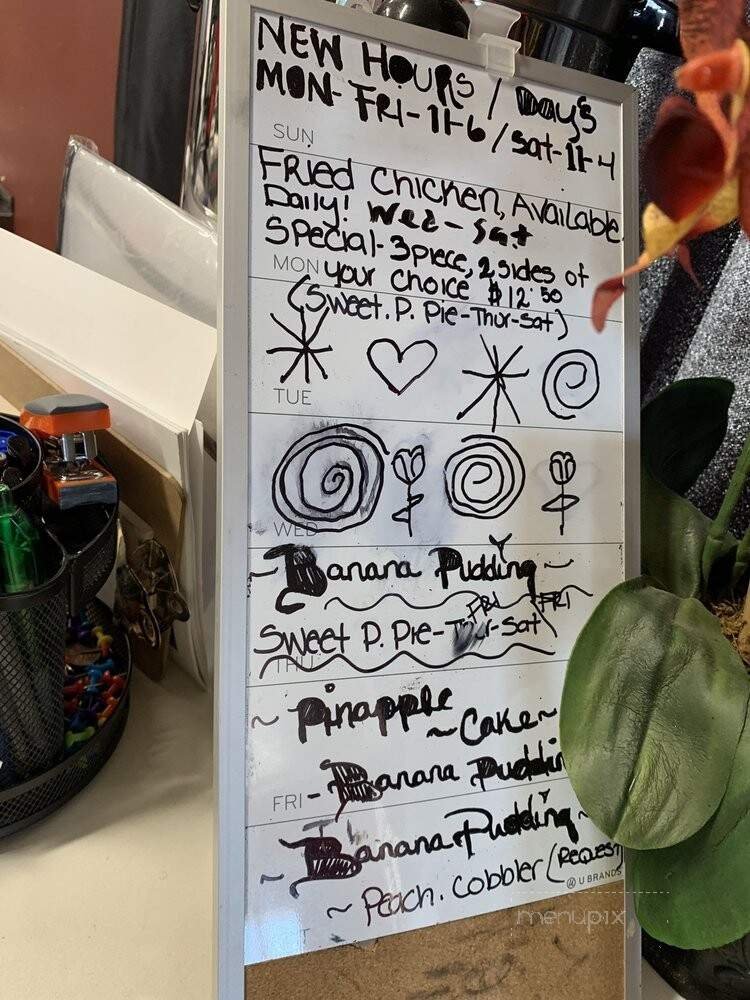 NEW HOURS / Days
MON- FRI- 11-6 / Sat-11-4
SUN
FRIED Chicken, Available
Daily! Wed - Sat
Special- 3piece, 2 sides of
MON your choice $12.50
(Sweet. P. Pie-Thur-Sat)
TUE
WED
~ Banana Pudding ~
FRI FRI
Sweet P. Pie- -Sat
THU
~ Pinapple
~ Cake ~
FRI - Banana Puddin
~ Banana Pudding ~
~ Peach. Cobbler (REQUEST
U BRANDS
menupix